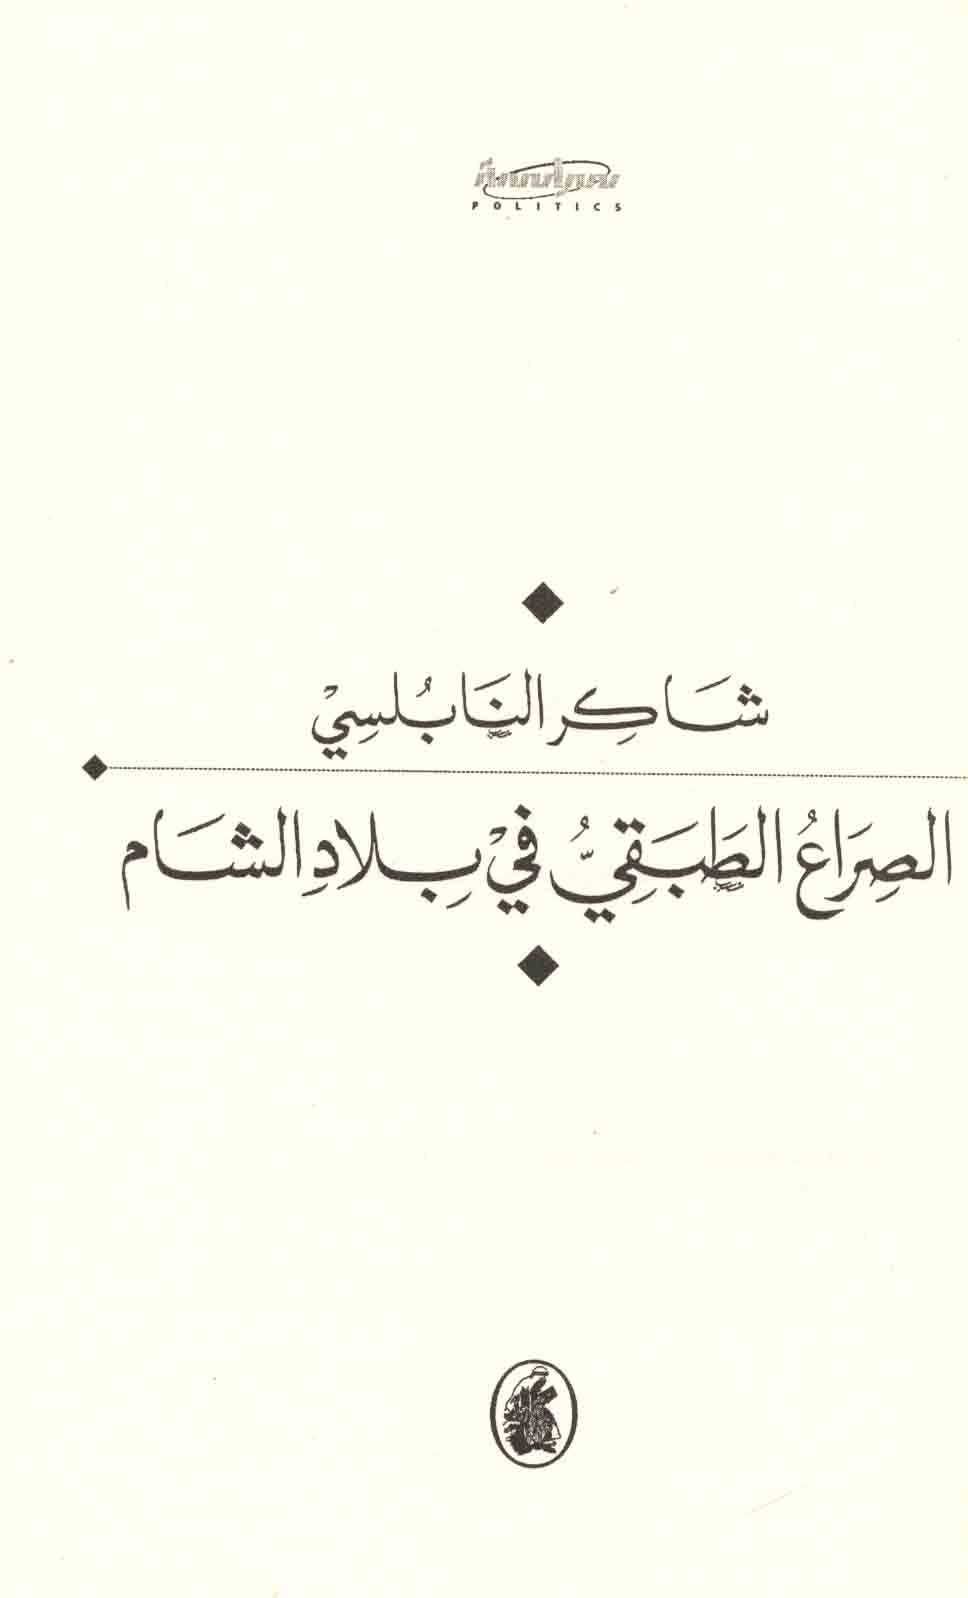 سياسة
POLITICS
شَاكِر النَّابُلسِيْ
الصِرَاعُ الطَبَقِيُّ فِيْ بِلادِ الشَام